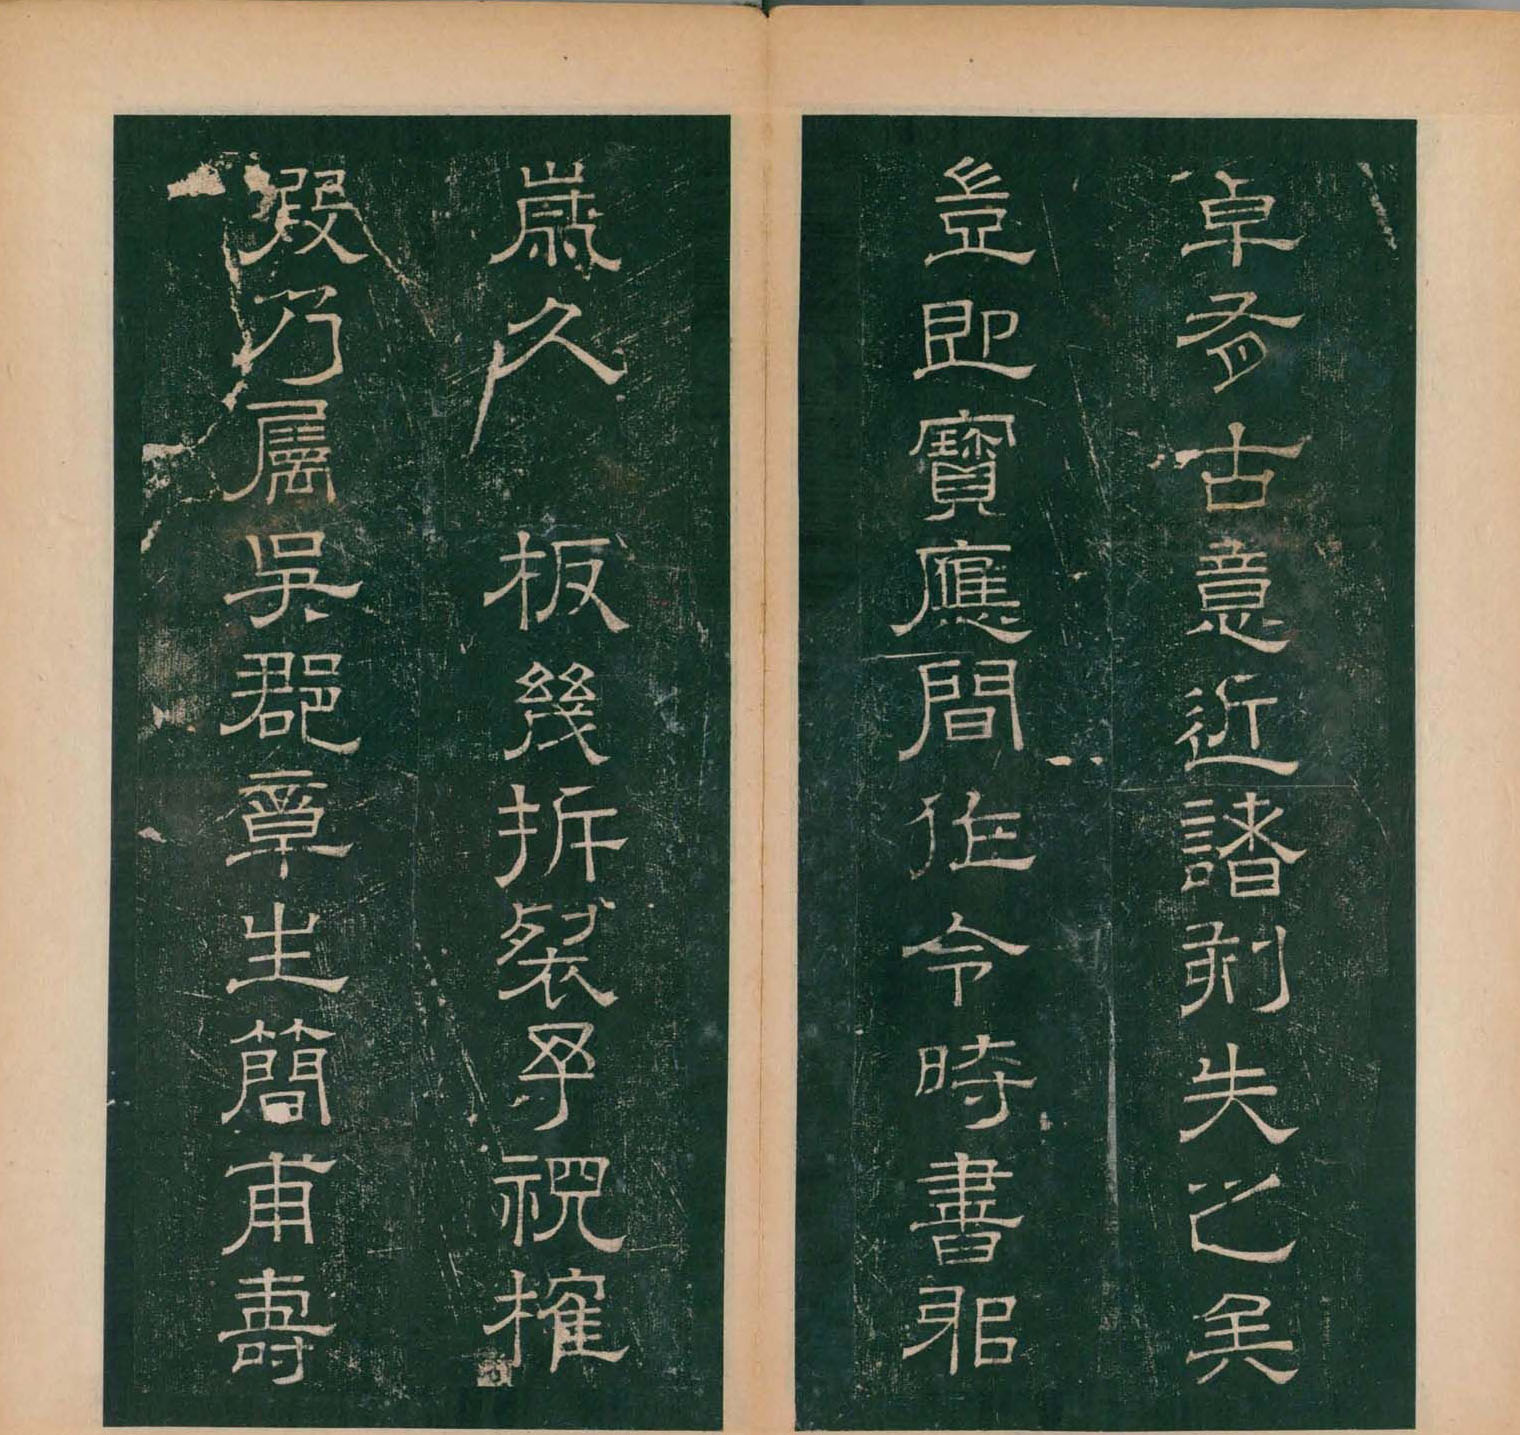 卓有古意近諸刻失之矣
豈即寶應間作令時書耶
歲久板幾拆裂予視搉
暇乃屬吳郡章生簡甫壽